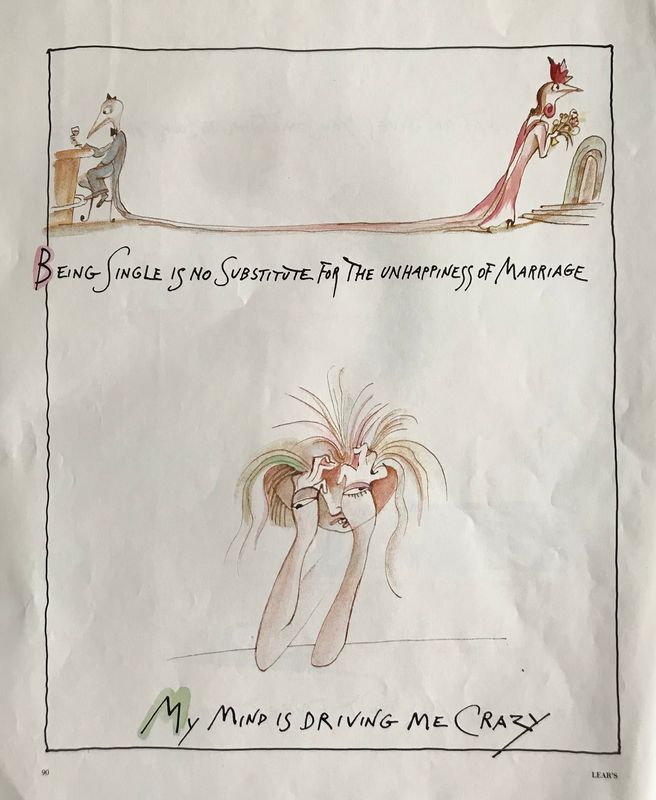 Being Single is no Substitute for the unhappiness of Marriage
My Mind is driving me Crazy
90
LEAR'S